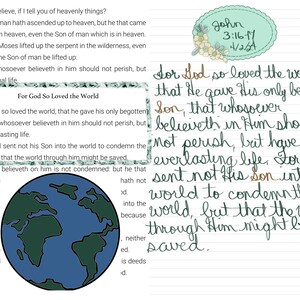 elieve, if I tell you of heavenly things?
man hath ascended up to heaven, but he that came
n heaven, even the Son of man which is in heaven.
Moses lifted up the serpent in the wilderness, even
he Son of man be lifted up:
hosoever believeth in him should not perish, but
nal life.
For God So Loved the World
so loved the world, that he gave his only begotten
believeth in him should not perish, but
lasting life.
d sent not his Son into the world to condemn the
that the world through him might be saved.
believeth on him is not condemned: but he that
hath not
into the
because
neither
d be
is deeds
od.
John
3:16-17
4/26/
For God so loved the wo
that He gave his only be
Son, that whosoever
believeth in Him shou
not perish, but have
everlasting life. For
sent not His Son int
world to condemn t
world, but that the
through Him might b
saved.